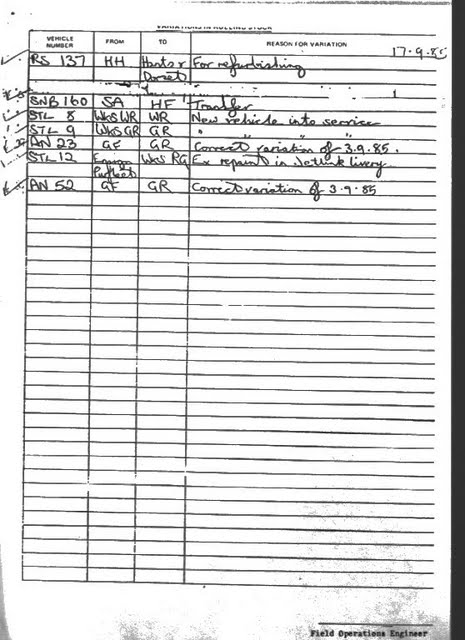 VARIATIONS IN ROLLING STOCK
VEHICLE NUMBER FROM TO REASON FOR VARIATION 17.9.85
RS 137 HH Hants & Dorset For refurbishing
SNB 160 SA HF Transfer
STL 8 WKS WR WR New vehicle into service
STL 9 WKS GR GR " " "
AN 23 GF GR Correct variation of 3.9.85.
STL 12 Purfleet WKS RG Ex repaint in Jetlink livery.
AN 52 GF GR Correct variation of 3.9.85
Field Operations Engineer